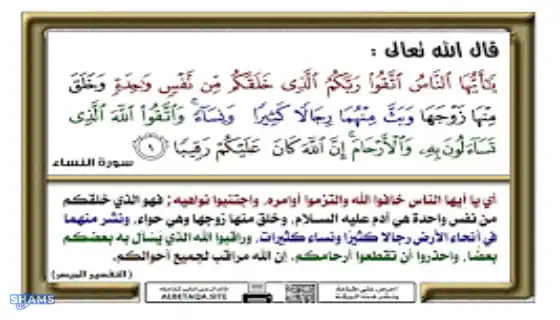 قال الله تعالى :
يَٰٓأَيُّهَا ٱلنَّاسُ ٱتَّقُوا۟ رَبَّكُمُ ٱلَّذِى خَلَقَكُم مِّن نَّفْسٍ وَٰحِدَةٍ وَخَلَقَ
مِنْهَا زَوْجَهَا وَبَثَّ مِنْهُمَا رِجَالًا كَثِيرًا وَنِسَآءً ۚ وَٱتَّقُوا۟ ٱللَّهَ ٱلَّذِى
تَسَآءَلُونَ بِهِۦ وَٱلْأَرْحَامَ ۚ إِنَّ ٱللَّهَ كَانَ عَلَيْكُمْ رَقِيبًا ١
سورة النساء
أي يا أيها الناس خافوا الله والتزموا أوامره، واجتنبوا نواهيه; فهو الذي خلقكم
من نفس واحدة هي آدم عليه السلام، وخلق منها زوجها وهي حواء، ونشر منهما
في أنحاء الأرض رجالا كثيرًا ونساء كثيرات، وراقبوا الله الذي يَسْأل به بعضكم
بعضًا، واحذروا أن تقطعوا أرحامكم. إن الله مراقب لجميع أحوالكم.
(التفسير الميسر)
ALBETAQA.SITE
احرص على طباعة
ونشر هذه البطاقة
SHAMS